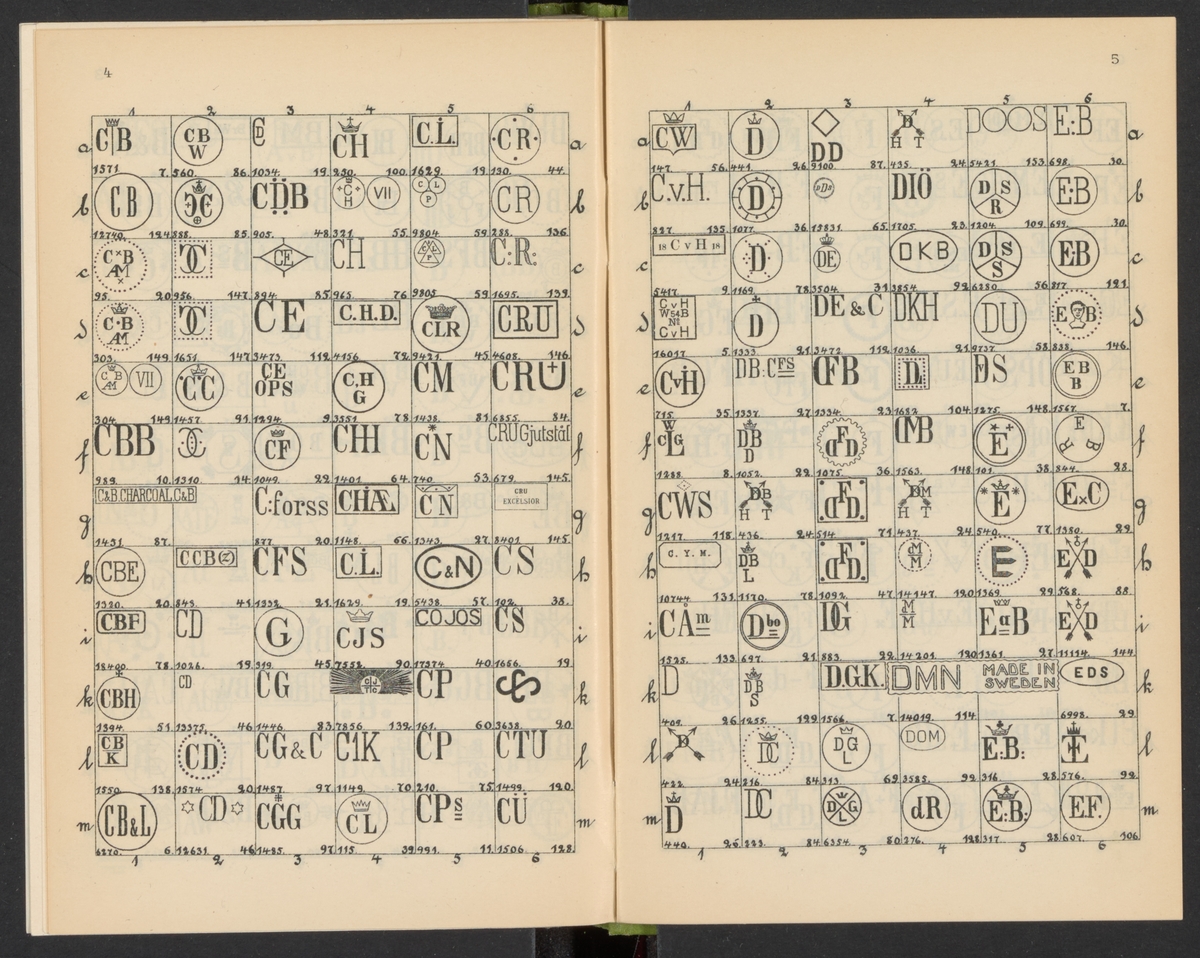 4
1 2 3 4 5 6
a CB CBW CD CH C.L. CR a
1571. 7. 560. 86. 1034. 19. 250. 100. 1629. 19. 130. 44.
b CB CC CDB CHM VII CLP CR b
12740. 124. 888. 85. 905. 48. 321. 55. 9804. 59. 288. 136.
c C×B AM CC CE CH C:R: c
95. 20. 956. 147. 894. 85. 965. 76. 9805. 59. 1695. 139.
d C·B AM CC CE C.H.D. CLR CRU d
303. 149. 1651. 147. 3473. 112. 4156. 72. 9421. 45. 4608. 146.
e CB AM VII CC CE OPS C.H G CM CRU e
304. 149. 1457. 91. 1294. 9. 3551. 78. 1438. 81. 6855. 84.
f CBB CC CF CHH CN CRU Gjutstål f
989. 10. 1310. 14. 1049. 29. 1401. 64. 740. 53. 679. 145.
g C&B.CHARCOAL.C&B C:forss CHÆ CN CRU EXCELSIOR g
1431. 87. 877. 20. 1148. 66. 1343. 27. 8401. 145.
h CBE CCB(Z) CFS C.L. C&N CS h
1320. 20. 843. 41. 1332. 21. 1629. 19. 5438. 57. 102. 38.
i CBF CD G CJS COJOS CS i
18490. 78. 1026. 19. 319. 45. 7552. 90. 17374. 40. 1656. 19.
k CBH CD CG CJ TC CP CS k
1394. 51. 13375. 46. 1446. 83. 7856. 132. 161. 60. 3638. 20.
l CB K CD CG&C C1K CP CTU l
1550. 138. 1574. 20. 1487. 97. 1149. 70. 210. 75. 1499. 120.
m CB&L CD CGG CL CPs CÜ m
6270. 6. 12631. 46. 1485. 97. 115. 39. 991. 11. 1506. 128.
1 2 3 4 5 6
5
1 2 3 4 5 6
a CW D DD D H T DOOS E:B a
147. 56. 441. 26. 9100. 87. 435. 24. 5421. 153. 698. 30.
b C.v.H. D DDS DIÖ DSR E:B b
827. 135. 1077. 36. 12831. 65. 1705. 23. 1204. 109. 699. 30.
c 18 C v H 18 D DE DKB DSS EB c
5417. 9. 1169. 78. 3504. 31. 3854. 92. 6280. 56. 817. 121.
d CvH W54B No CvH D DE&C DKH DU E B d
16017. 5. 1333. 21. 3472. 112. 1036. 21. 9737. 58. 838. 146.
e CvH DB:CFS CFB DL DS EB B e
715. 35. 1337. 27. 1334. 23. 1682. 104. 1275. 148. 1567. 7.
f W CG DB D dFD CMB E E B f
1288. 8. 1052. 22. 1075. 36. 1563. 148. 101. 38. 844. 28.
g CWS DB H T dFD. DM H T E ExC g
1217. 118. 436. 24. 514. 71. 437. 24. 540. 77. 1380. 29.
h C.Y.M. DB L dFD. dM M E E D h
10744. 131. 1170. 78. 1092. 47. 14147. 120. 1369. 29. 568. 88.
i CÅm Dbo DG M M EaB E D i
1525. 133. 697. 21. 883. 22. 14201. 120. 1361. 27. 11114. 144.
k D DB S D.G.K. DMN MADE IN SWEDEN EDS k
409. 26. 1255. 122. 1566. 7. 14019. 114. 6998. 29.
l D DC DG L DOM E:B: E l
422. 24. 216. 84. 313. 69. 3585. 92. 316. 28. 576. 92.
m D DC DGL dR E:B: EF. m
440. 26. 223. 84. 6354. 80. 276. 128. 317. 28. 607. 106.
1 2 3 4 5 6